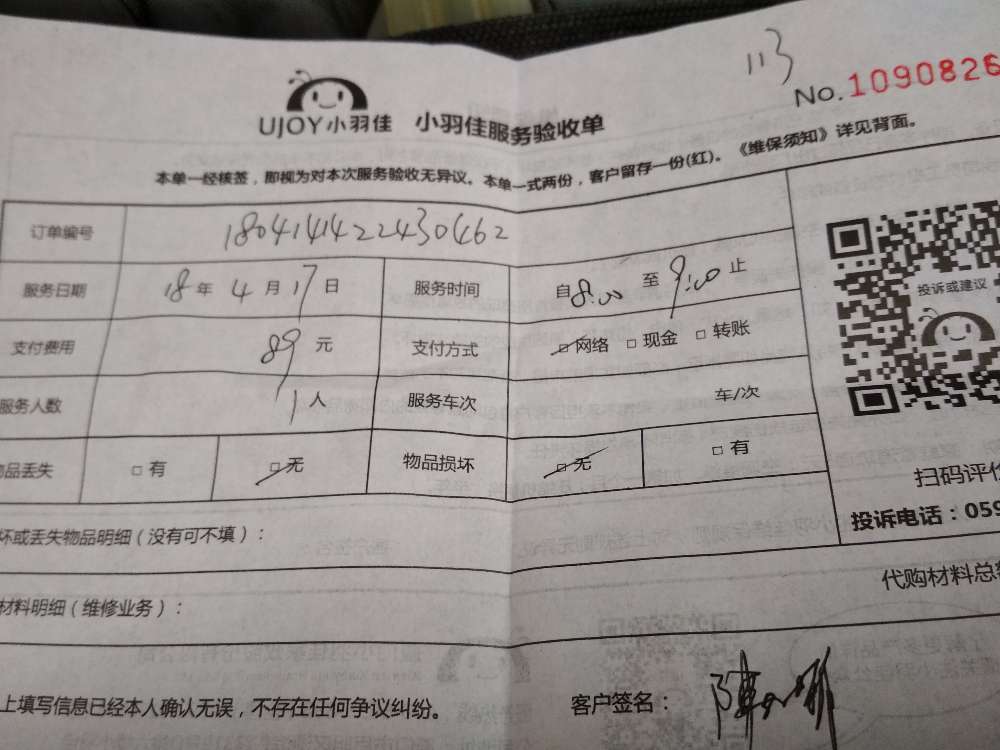 113
No.1090826
UJOY小羽佳 小羽佳服务验收单
本单一经核签，即视为对本次服务验收无异议。本单一式两份，客户留存一份(红)。《维保须知》详见背面。
订单编号 180414142243046​2
服务日期 18年 4月 17日 服务时间 自8:00 至 9:00 止
支付费用 89 元 支付方式 □网络 □现金 □转账
服务人数 1人 服务车次 车/次
品丢失 □有 □无 物品损坏 □无 □有
投诉或建议
扫码评价
投诉电话：059
坏或丢失物品明细（没有可不填）：
代购材料总
材料明细（维修业务）：
上填写信息已经本人确认无误，不存在任何争议纠纷。
客户签名：